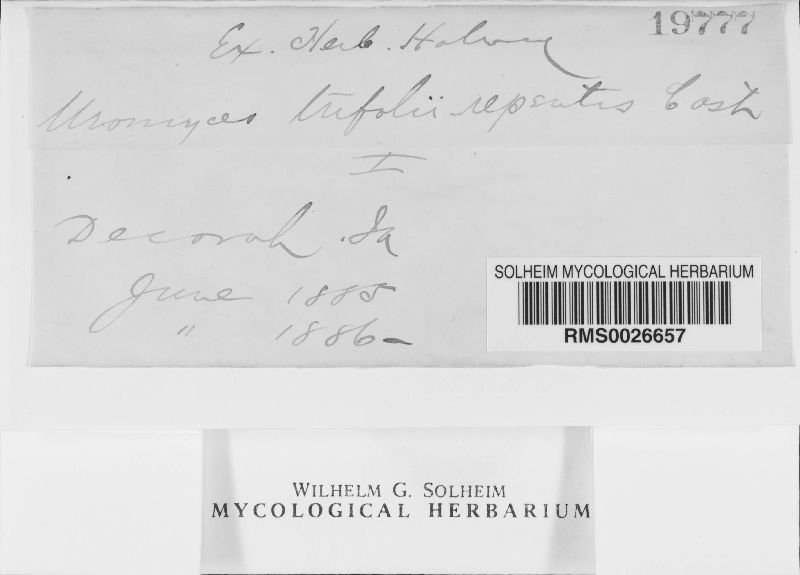 19777
Ex. Herb. Holway
Uromyces trifolii repentis Cast
I
Decorah. Ia
June 1885
" 1886-
SOLHEIM MYCOLOGICAL HERBARIUM
RMS0026657
WILHELM G. SOLHEIM
MYCOLOGICAL HERBARIUM